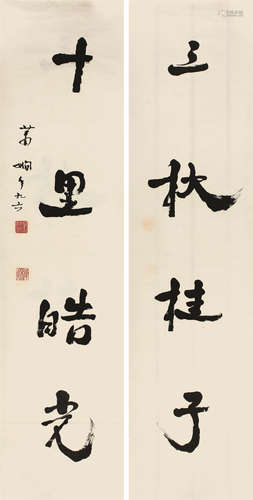 三秋桂子
十里皓光
萧娴年九六